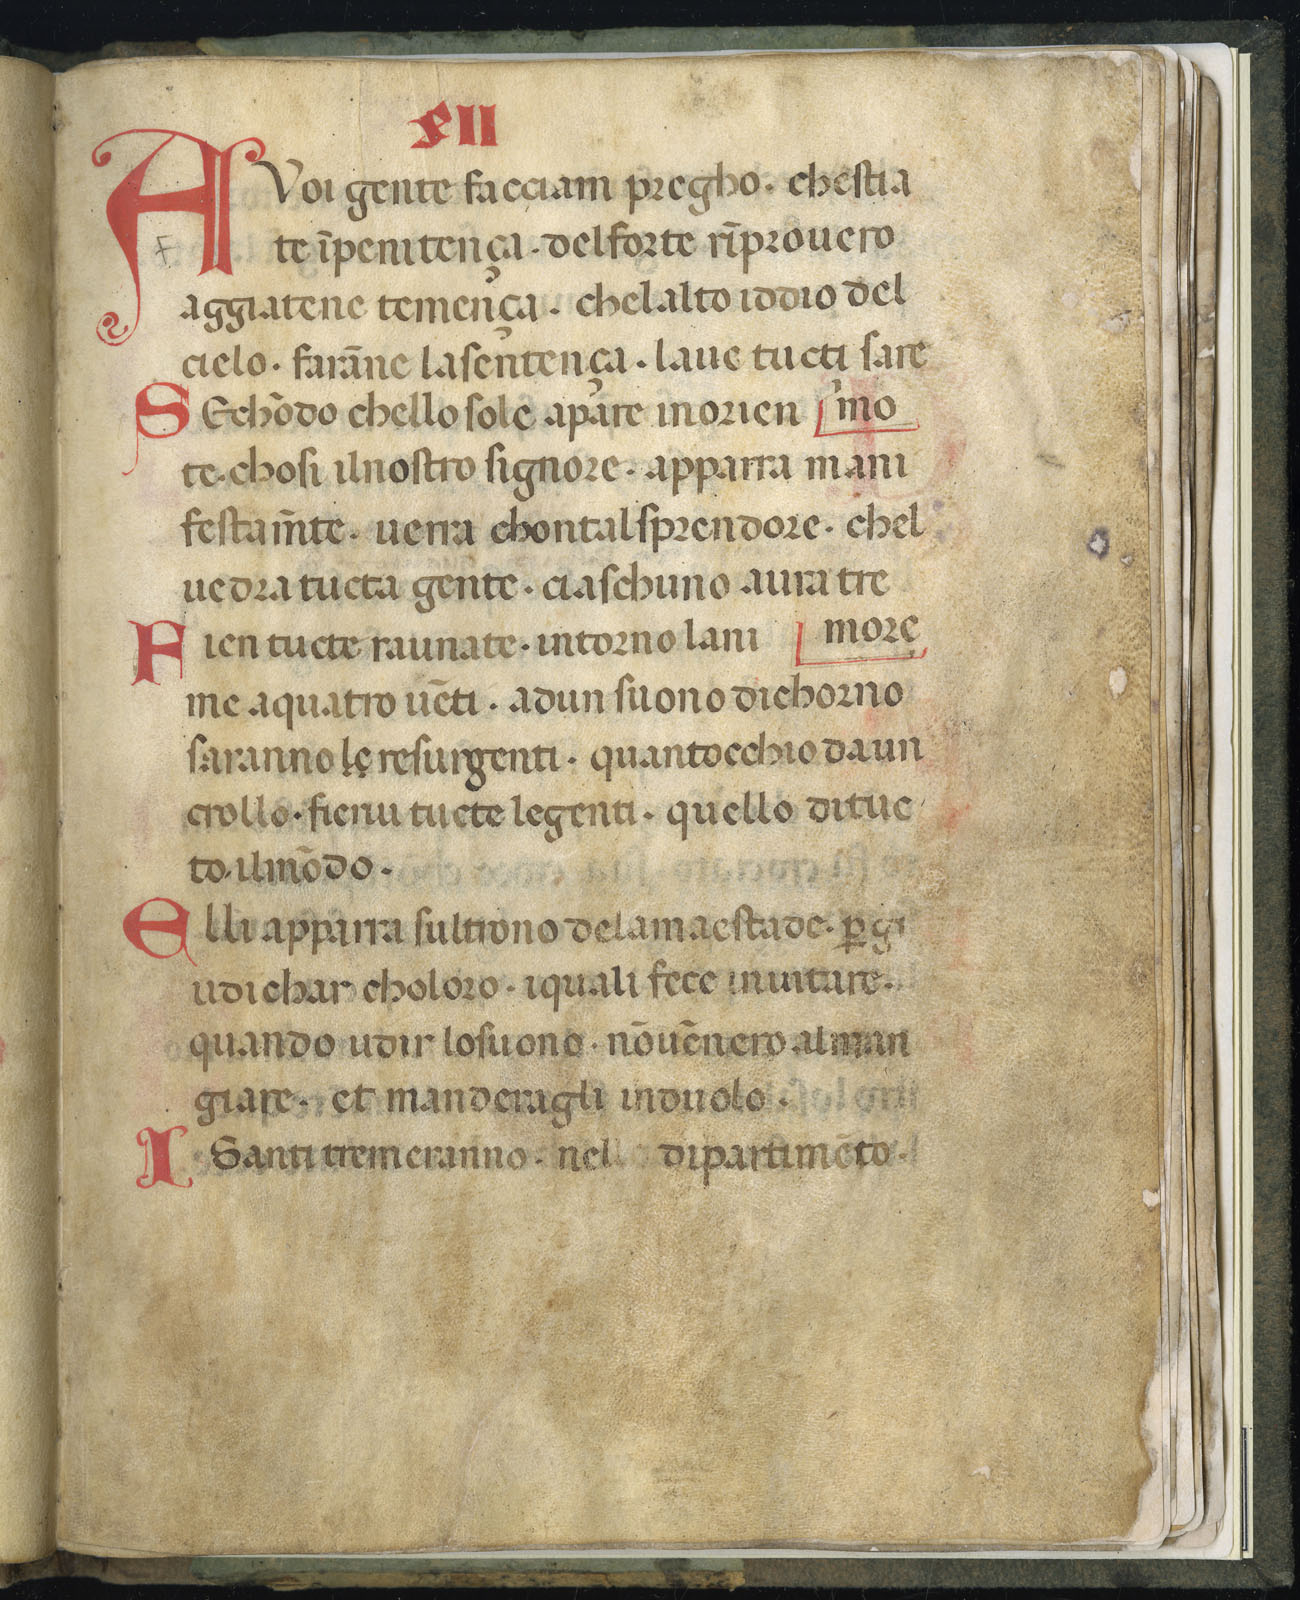 XII
A Voi gente facciam pregho · chestia
te īpenitença · delforte rīprouero
aggiatene temença · chelalto iddio del
cielo · farāne lasentença · laue tucti sare
SEchōdo chello sole apare inorien mo
te · chosi ilnostro signore · apparra mani
festam̄te · uerra chontal sprendore · chel
uedra tucta gente · ciaschuno aura tre
Fien tucte raunate · intorno lani more
me aquatro uēti · adun suono dichorno
saranno le resurgenti · quantocchio daun
crollo · fienu tucte legenti · quello di tuc
to ilmōdo ·
Elli apparra sultrono delamaestade · ꝑ gi
udichar choloro · iquali fece inuitare ·
quando udir losuono · nōuēnero alman
giare · et manderagli induolo ·
I Santi tremeranno · nel dipartimēto ·